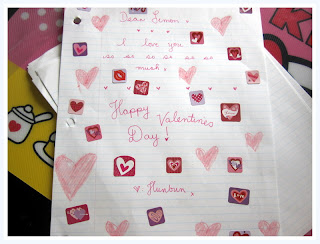 Dear Simon,
I love you
so so so so so so
much.
Happy
Valentines
Day!
Hunbun